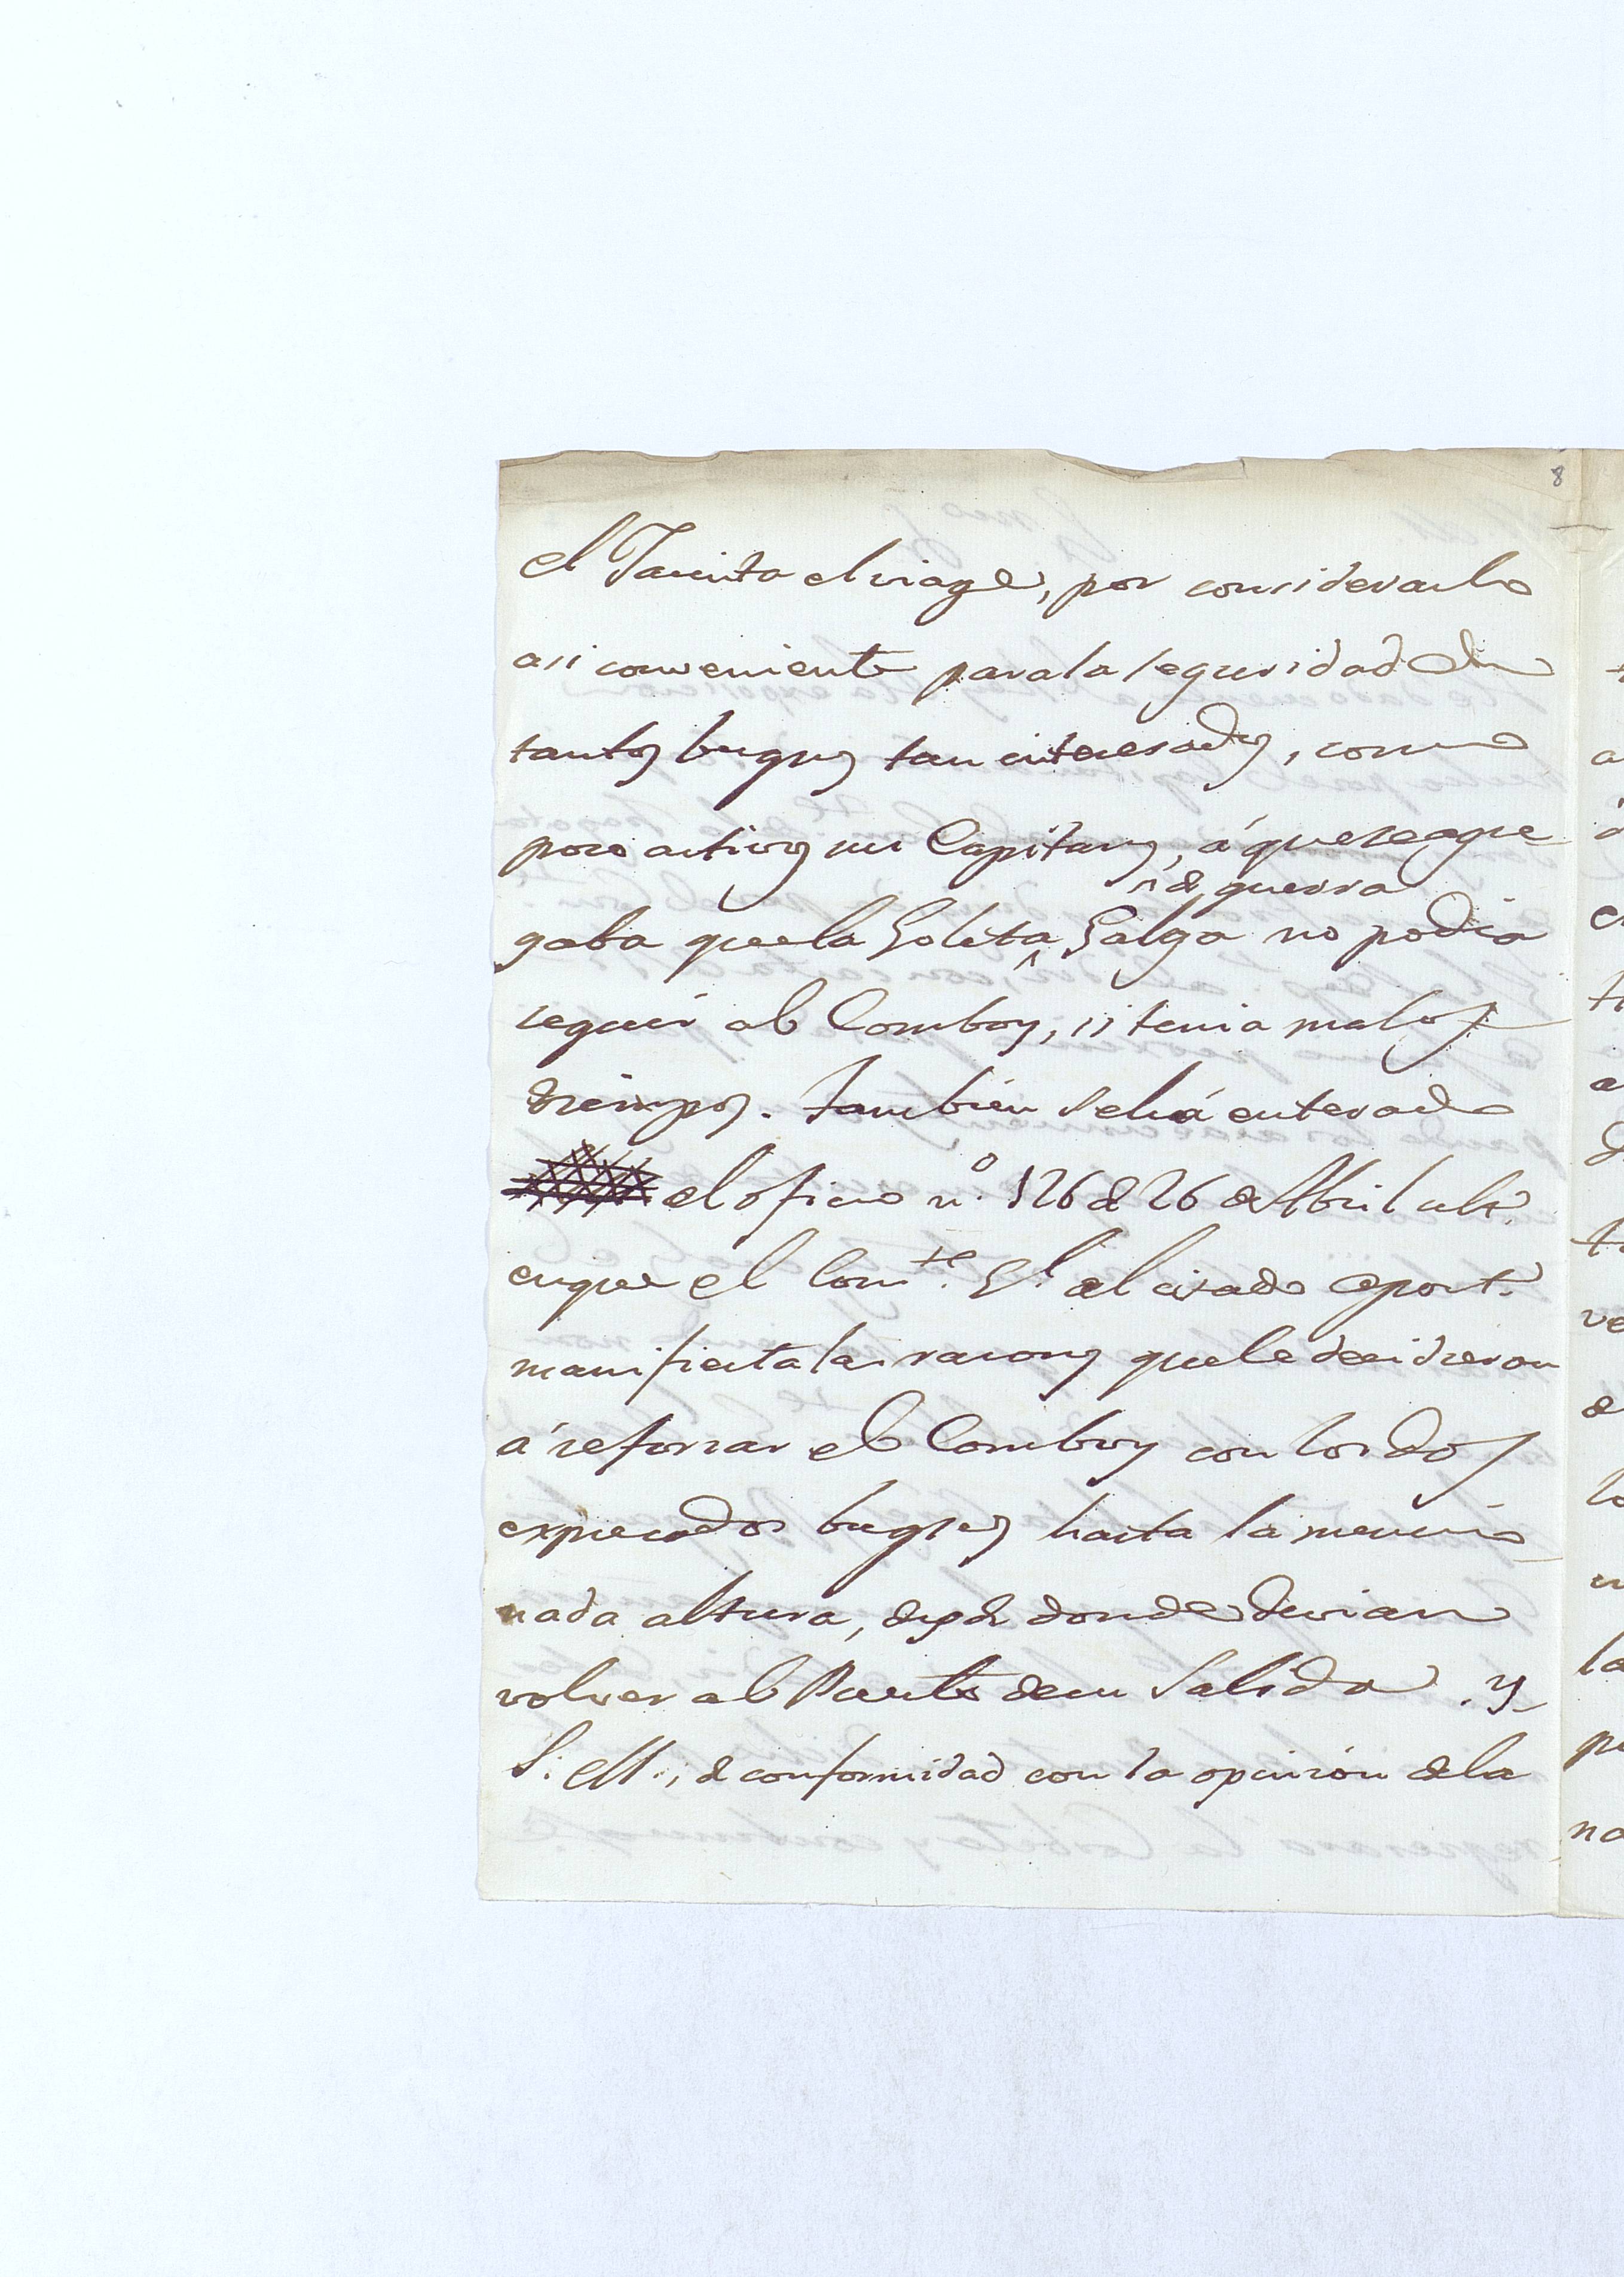 8
el Jacinta el viage, por considerarlo
asi conveniente para la seguridad de
tantos buques tan interesados, como
poco activos sus Capitanes, á que se agre
^ de guerra
gaba que la Goleta ^ Galga no podia
seguir al Comboy, si tenia malos
tiempos. Tambien se há enterado
el oficio nº. 126 de 26 de Abril ult.º
en que el Com.te Gl. del citado Apost.º
manifiesta las razones que le decidieron
á reforzar el Comboy con los dos
expresados buques hasta la mencio
nada altura, desde donde devian
volver al Puerto de su Salida. Y
S. M., de conformidad con la opinión de la